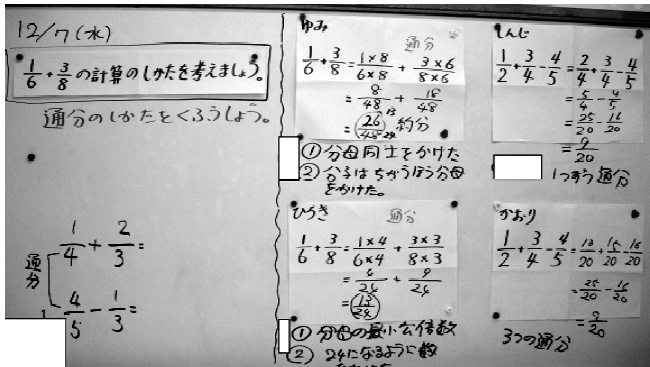 12/7(水)
1/6+3/8の計算のしかたを考えましょう。
通分のしかたをくふうしよう。
1/4+2/3=
通分
4/5-1/3=
ゆみ
通分
1/6+3/8=1×8/6×8+3×6/8×6
=8/48+18/48
=26/48 13 24 約分
①分母同士をかけた
②分子はちがうほう分母
をかけた。
ひろき
通分
1/6+3/8=1×4/6×4+3×3/8×3
=4/24+9/24
=13/24
①分母の最小公倍数
②24になるように数
しんじ
1/2+3/4-4/5=2/4+3/4-4/5
=5/4-4/5
=25/20-16/20
=9/20
1つずつ通分
かおり
1/2+3/4-4/5=10/20+15/20-16/20
=25/20-16/20
=9/20
3つの通分